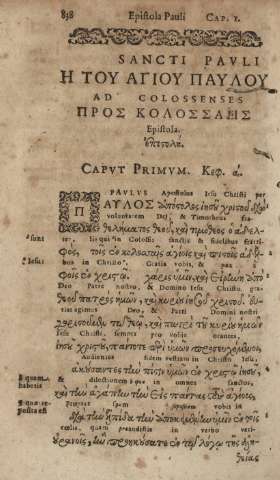 838 Epistola Pauli CAP. I.
SANCTI PAVLI
Η ΤΟΥ ΑΓΙΟΥ ΠΑΥΛΟΥ
AD COLOSSENSES
ΠΡΟΣ ΚΟΛΟΣΣΑΕΙΣ
Epistola.
ἐπιστολή.
CAPVT PRIMVM. Κεφ. ά.
PAVLVS Apostolus Iesu Christi per
ΠΑΥΛΟΣ ἀπόστολος ἰησοῦ χριστοῦ διὰ
voluntatem Dei, & Timotheus fra-
θελήματος θεοῦ, καὶ τιμόθεος ὁ ἀδελ-
* sunt ter, iis qui *in Colossis sanctis & fidelibus fratri-
φὸς, τοῖς ἐν κολοσσαῖς ἁγίοις καὶ πιστοῖς ἀδελ-
* Iesu bus in Christo*. Gratia vobis, &
φοῖς ἐν χριστῷ. χάρις ὑμῖν, καὶ εἰρήνη ἀπὸ
Deo Patre nostro, & Domino Iesu Christo, gra-
θεοῦ πατρὸς ἡμῶν, καὶ κυρίου ἰησοῦ χριστοῦ.
tias agimus Deo, & Patri Domini nostri
εὐχαριστοῦμεν τῷ θεῷ, καὶ πατρὶ τοῦ κυρίου ἡμῶν
Iesu Christi, semper vobis orantes,
ἰησοῦ χριστοῦ, πάντοτε περὶ ὑμῶν προσευχόμενοι,
Audientes fidem vestram in Christo Iesu,
ἀκούσαντες τὴν πίστιν ὑμῶν ἐν χριστῷ ἰησοῦ,
* quam habetis & dilectionem * in omnes sanctos,
καὶ τὴν ἀγάπην τὴν εἰς πάντας τοὺς ἁγίους,
Propter spem vobis in
διὰ τὴν ἐλπίδα τὴν ἀποκειμένην ὑμῖν ἐν τοῖς
cælis, quam præaudistis in verbo veri-
οὐρανοῖς, ἣν προηκούσατε ἐν τῷ λόγῳ τῆς ἀλη-
θείας